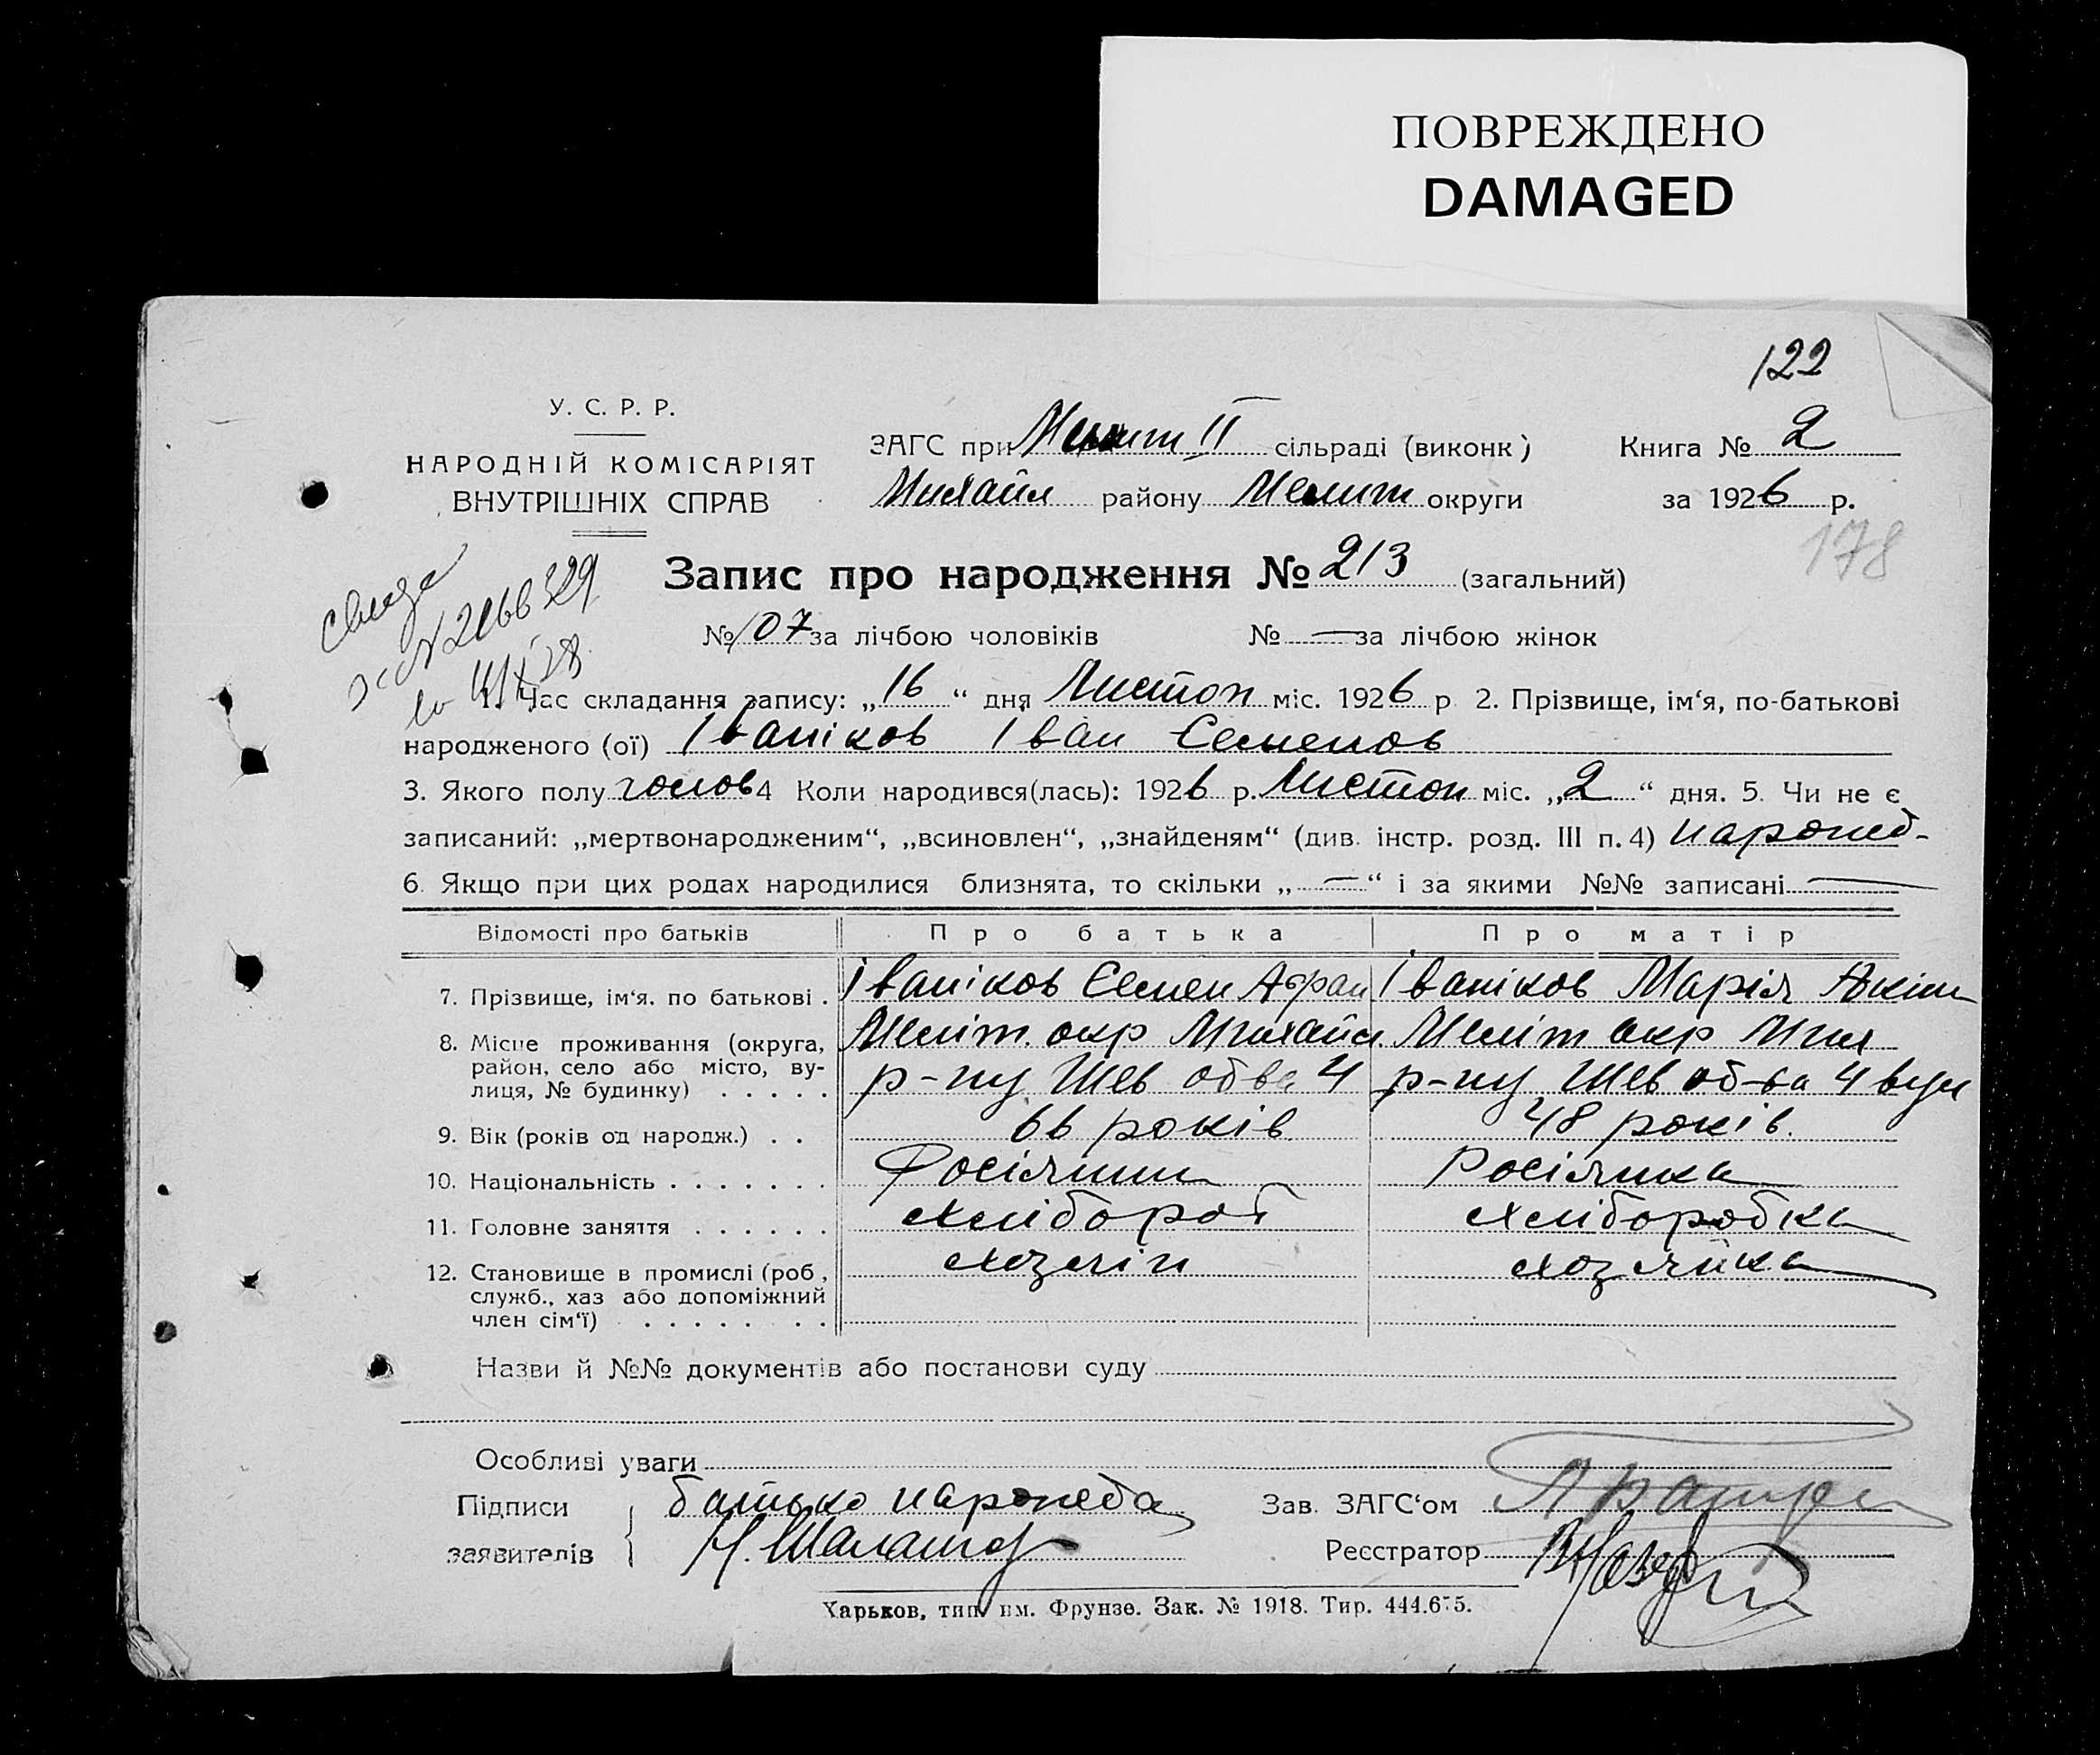 ПОВРЕЖДЕНО
DAMAGED
122
У. С. Р. Р.
НАРОДНІЙ КОМІСАРІЯТ
ВНУТРІШНІХ СПРАВ
ЗАГС при II сільраді (виконк) Книга № 2
Михайл району Мелит округи за 1926 р.
178
Запис про народження № 213 (загальний)
№ 107 за лічбою чоловіків № — за лічбою жінок
1. Час складання запису: „16“ дня Листоп міс. 1926 р 2. Прізвище, ім‘я, по-батькові
народженого (ої) Іваніков Іван Семенов
3. Якого полу чолов 4 Коли народився(лась): 1926 р. Листоп міс. „2“ дня. 5. Чи не є
записаний: „мертвонародженим“, „всиновлен“, „знайденям“ (див. інстр. розд. III п. 4) народжен-
6. Якщо при цих родах народилися близнята, то скільки „—“ і за якими №№ записані —
Відомості про батьків Про батька Про матір
7. Прізвище, ім‘я. по батькові . Іваніков Семен Іваніков Марія
8. Місце проживання (округа, Меліт. окр Михайл Меліт окр Мих
район, село або місто, ву- р-ну Шев об-ва 4 р-ну Шев об-ва 4 вул
лиця, № будинку) . . . . .
9. Вік (років од народж.) . . 66 років 48 років.
10. Національність . . . . . . . Росіянин Росіянка
11. Головне заняття . . . . . . хлібороб хліборобка
12. Становище в промислі (роб, хозяін хозяйка
служб., хаз або допоміжний
член сім‘ї) . . . . . . . .
Назви й №№ документів або постанови суду
Особливі уваги
Підписи батько Зав. ЗАГС‘ом
заявителів Реєстратор
Харьков, тип. им. Фрунзе. Зак. № 1918. Тир. 444.675.